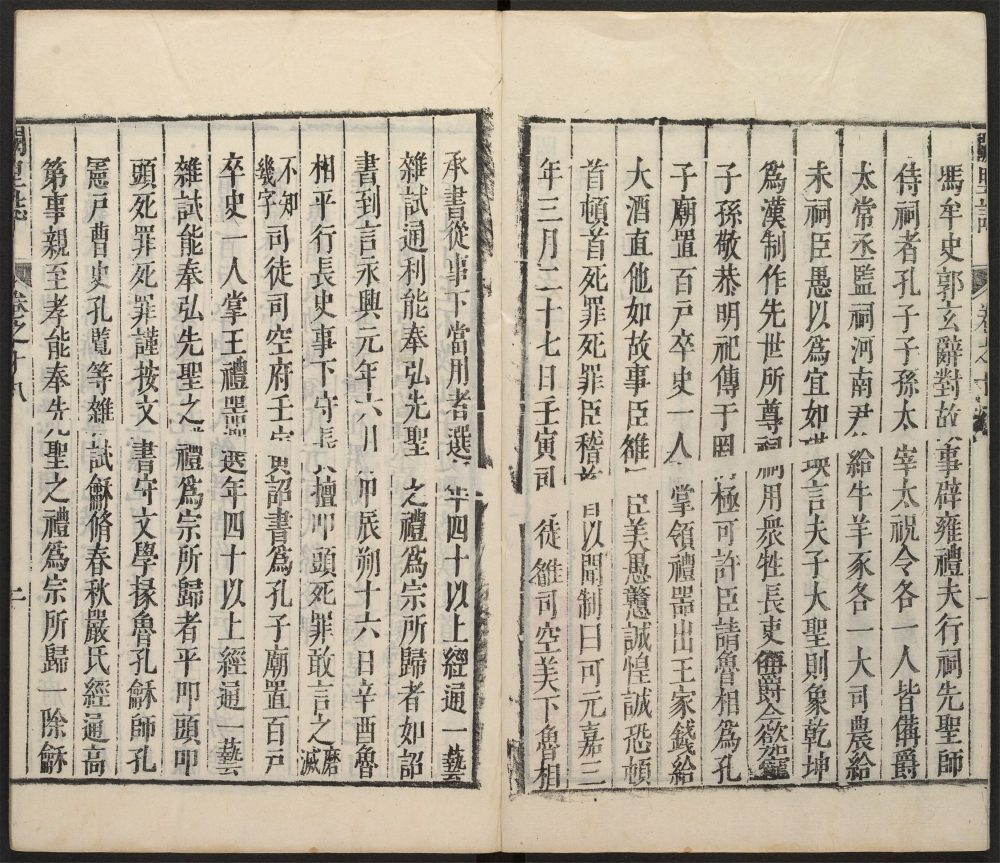 馮牟史郭玄辭對故事辟雍禮夫行祠先聖師
侍祠者孔子子孫太宰太祝令各一人皆備爵
太常丞監祠河南尹給牛羊豕各一大司農給
米祠臣愚以為宜如瑛言夫子大聖則象乾坤
為漢制作先世所尊祠用眾牲長吏備爵令欲加寵
子孫敬恭明祀傳于罔極可許臣請魯相為孔
子廟置百戶卒史一人掌領禮器出王家錢給
大酒直他如故事臣雄臣美愚戇誠惶誠恐頓
首頓首死罪死罪臣稽首以聞制曰可元嘉三
年三月二十七日壬寅司徒雄司空美下魯相
承書從事下當用者選年四十以上經通一藝
雜試通利能奉弘先聖之禮為宗所歸者如詔
書到言永興元年六月甲辰朔十六日辛酉魯
相平行長史事下守長擅叩頭死罪敢言之磨滅
不知幾字司徒司空府壬寅詔書為孔子廟置百戶
卒史一人掌王禮器選年四十以上經通一藝
雜試能奉弘先聖之禮為宗所歸者平叩頭叩
頭死罪死罪謹按文書守文學掾魯孔龢師孔
憲戶曹史孔覽等雜試龢脩春秋嚴氏經通高
第事親至孝能奉先聖之禮為宗所歸一除龢
闕里誌 卷之十八 二